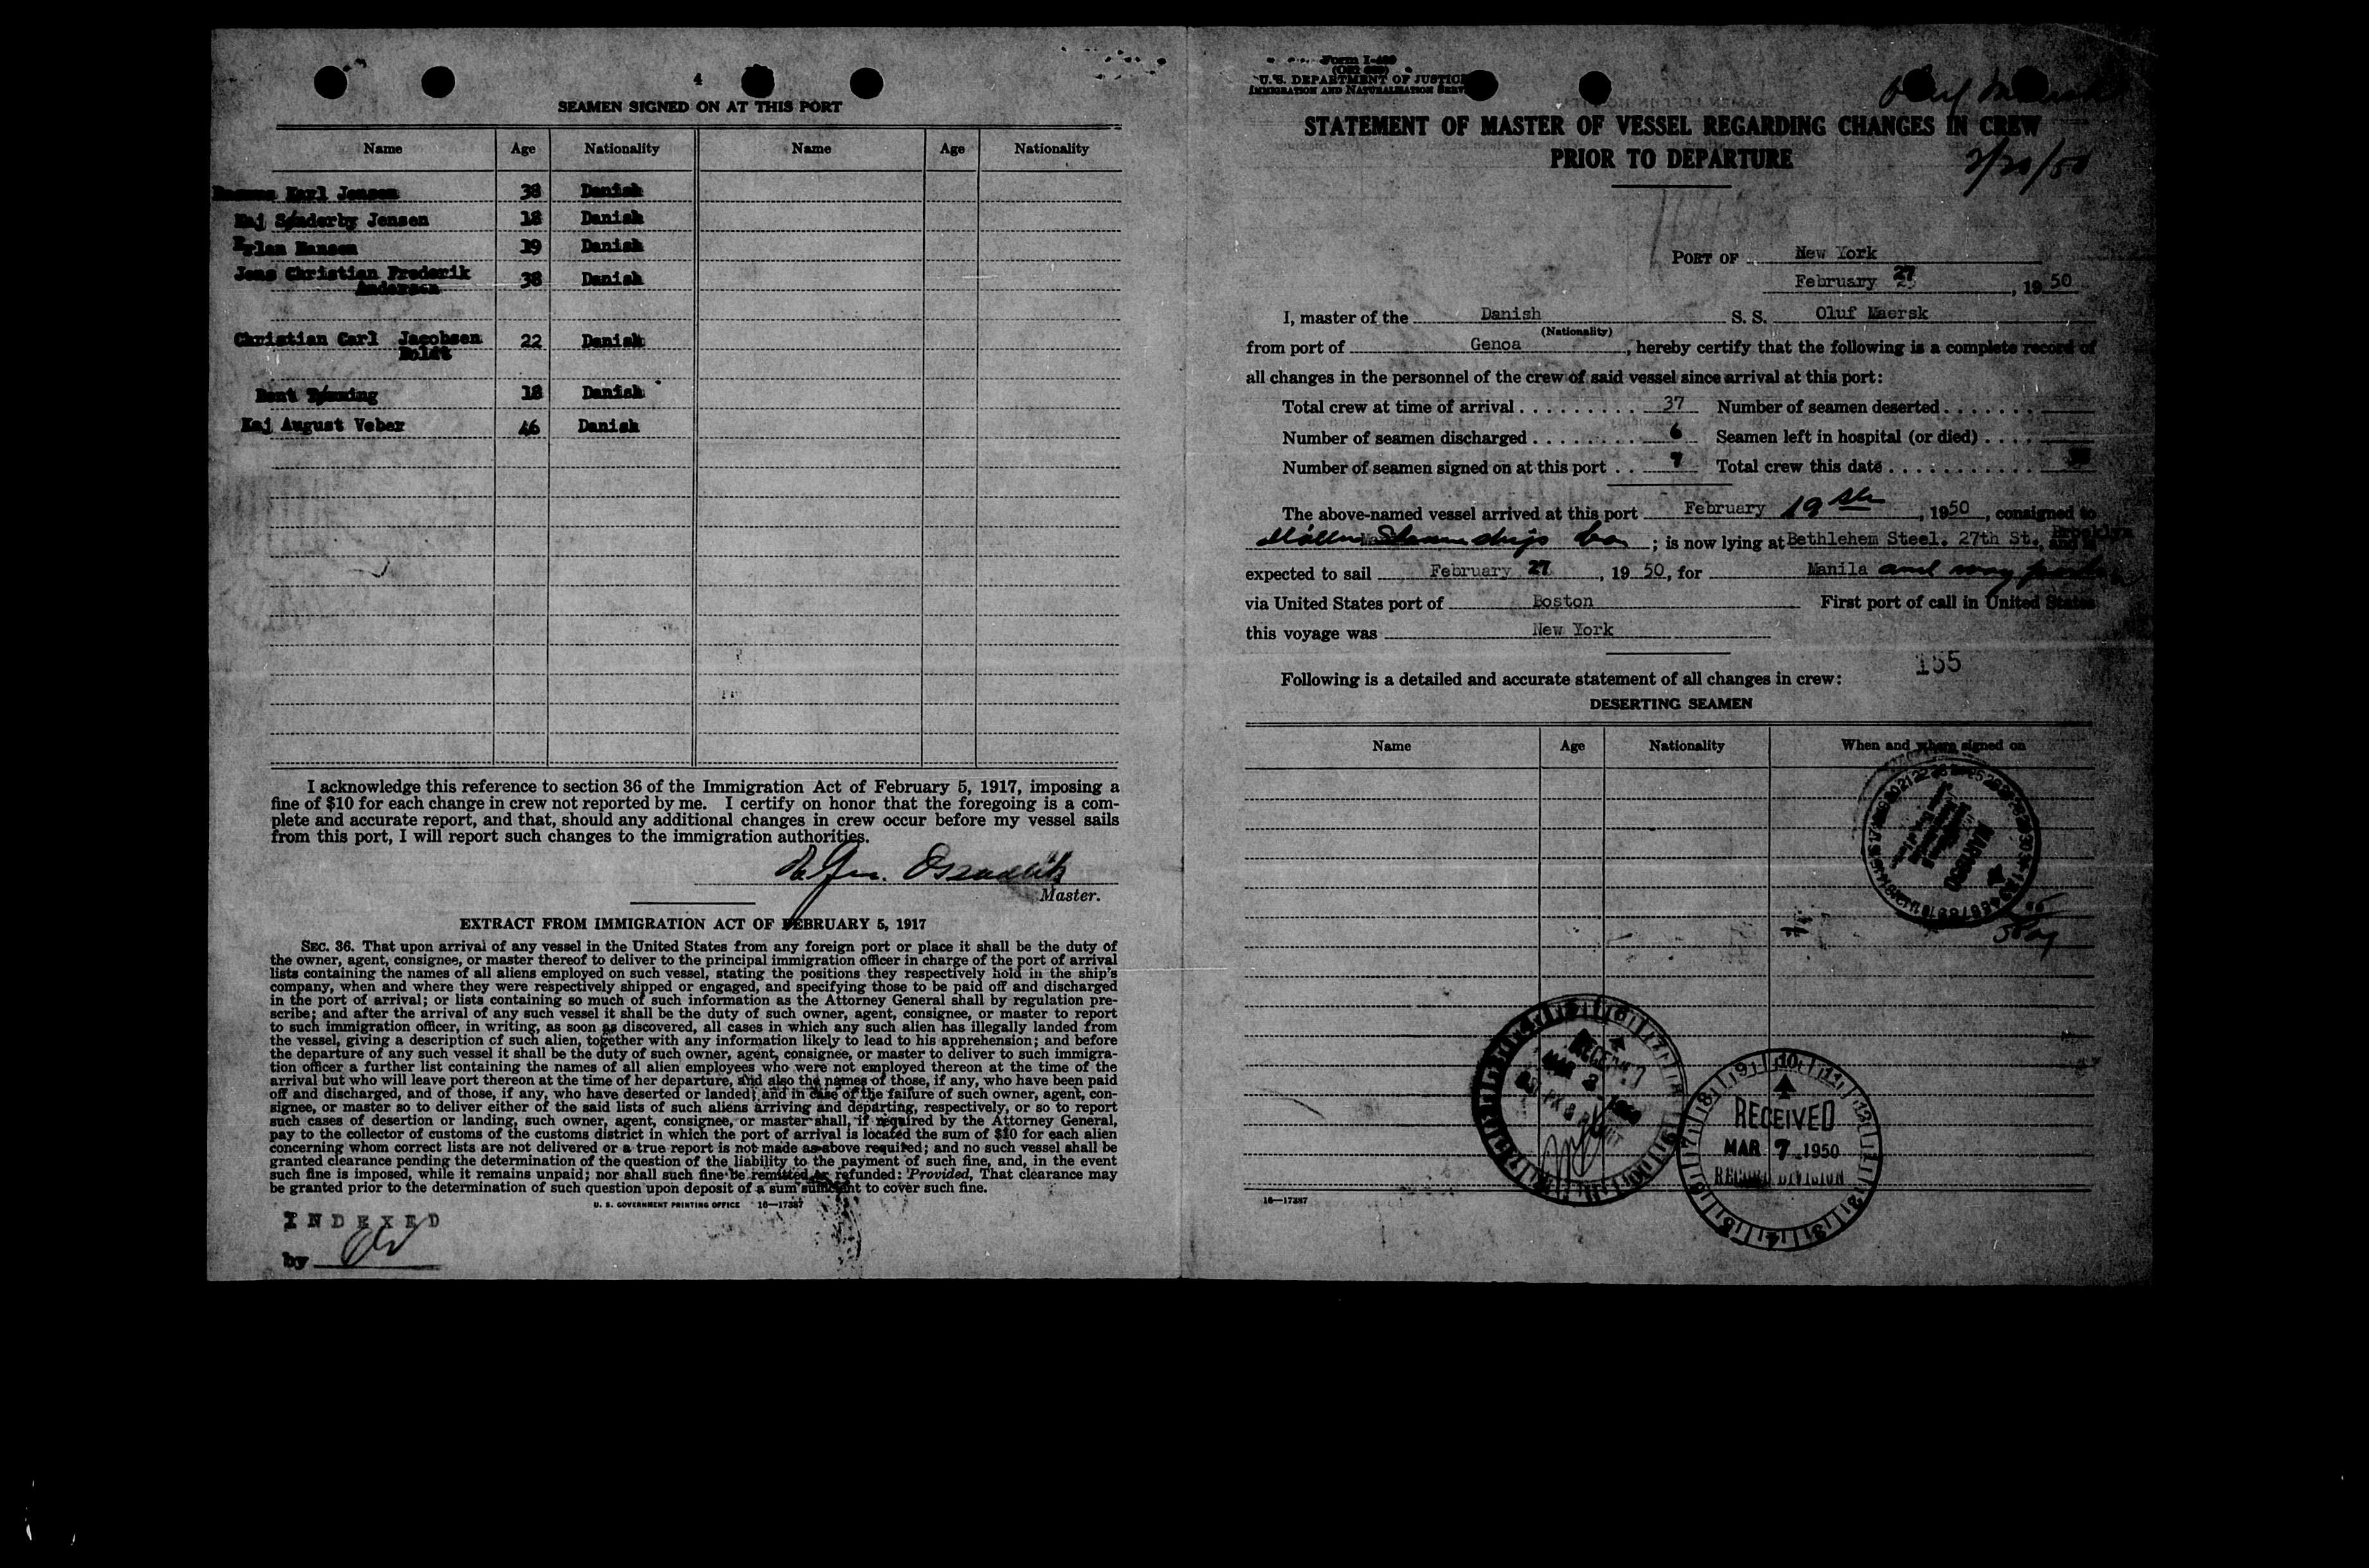 4
SEAMEN SIGNED ON AT THIS PORT
Name Age Nationality Name Age Nationality
Karl Jensen 38 Danish
Kaj Sønderby Jensen 18 Danish
Hansen 19 Danish
Jens Christian Frederik
Andersen 38 Danish
Christian Carl Jacobsen
Boldt 22 Danish
Bent 18 Danish
Kaj August Veber 46 Danish
I acknowledge this reference to section 36 of the Immigration Act of February 5, 1917, imposing a
fine of $10 for each change in crew not reported by me. I certify on honor that the foregoing is a com-
plete and accurate report, and that, should any additional changes in crew occur before my vessel sails
from this port, I will report such changes to the immigration authorities.
Master.
EXTRACT FROM IMMIGRATION ACT OF FEBRUARY 5, 1917
SEC. 36. That upon arrival of any vessel in the United States from any foreign port or place it shall be the duty of
the owner, agent, consignee, or master thereof to deliver to the principal immigration officer in charge of the port of arrival
lists containing the names of all aliens employed on such vessel, stating the positions they respectively hold in the ship's
company, when and where they were respectively shipped or engaged, and specifying those to be paid off and discharged
in the port of arrival; or lists containing so much of such information as the Attorney General shall by regulation pre-
scribe; and after the arrival of any such vessel it shall be the duty of such owner, agent, consignee, or master to report
to such immigration officer, in writing, as soon as discovered, all cases in which any such alien has illegally landed from
the vessel, giving a description of such alien, together with any information likely to lead to his apprehension; and before
the departure of any such vessel it shall be the duty of such owner, agent, consignee, or master to deliver to such immigra-
tion officer a further list containing the names of all alien employees who were not employed thereon at the time of the
arrival but who will leave port thereon at the time of her departure, and also the names of those, if any, who have been paid
off and discharged, and of those, if any, who have deserted or landed; and in case of the failure of such owner, agent, con-
signee, or master so to deliver either of the said lists of such aliens arriving and departing, respectively, or so to report
such cases of desertion or landing, such owner, agent, consignee, or master shall, if required by the Attorney General,
pay to the collector of customs of the customs district in which the port of arrival is located the sum of $10 for each alien
concerning whom correct lists are not delivered or a true report is not made as above required; and no such vessel shall be
granted clearance pending the determination of the question of the liability to the payment of such fine, and, in the event
such fine is imposed, while it remains unpaid; nor shall such fine be remitted or refunded: Provided, That clearance may
be granted prior to the determination of such question upon deposit of a sum sufficient to cover such fine.
U. S. GOVERNMENT PRINTING OFFICE 16—17387
INDEXED
by
Form I-489
U. S. DEPARTMENT OF JUSTICE
IMMIGRATION AND NATURALIZATION SERV
Oluf Maersk
STATEMENT OF MASTER OF VESSEL REGARDING CHANGES IN CREW
PRIOR TO DEPARTURE
PORT OF New York
February 27, 1950
I, master of the Danish S. S. Oluf Maersk
(Nationality)
from port of Genoa, hereby certify that the following is a complete record of
all changes in the personnel of the crew of said vessel since arrival at this port:
Total crew at time of arrival 37 Number of seamen deserted
Number of seamen discharged 6 Seamen left in hospital (or died)
Number of seamen signed on at this port 7 Total crew this date
The above-named vessel arrived at this port February 19th, 1950, consigned to
; is now lying at Bethlehem Steel. 27th St., Brooklyn and is
expected to sail February 27, 1950, for Manila and way ports
via United States port of Boston First port of call in United States
this voyage was New York
155
Following is a detailed and accurate statement of all changes in crew:
DESERTING SEAMEN
Name Age Nationality When and where signed on
RECEIVED
MAR 7 1950
RECORD DIVISION
16—17387